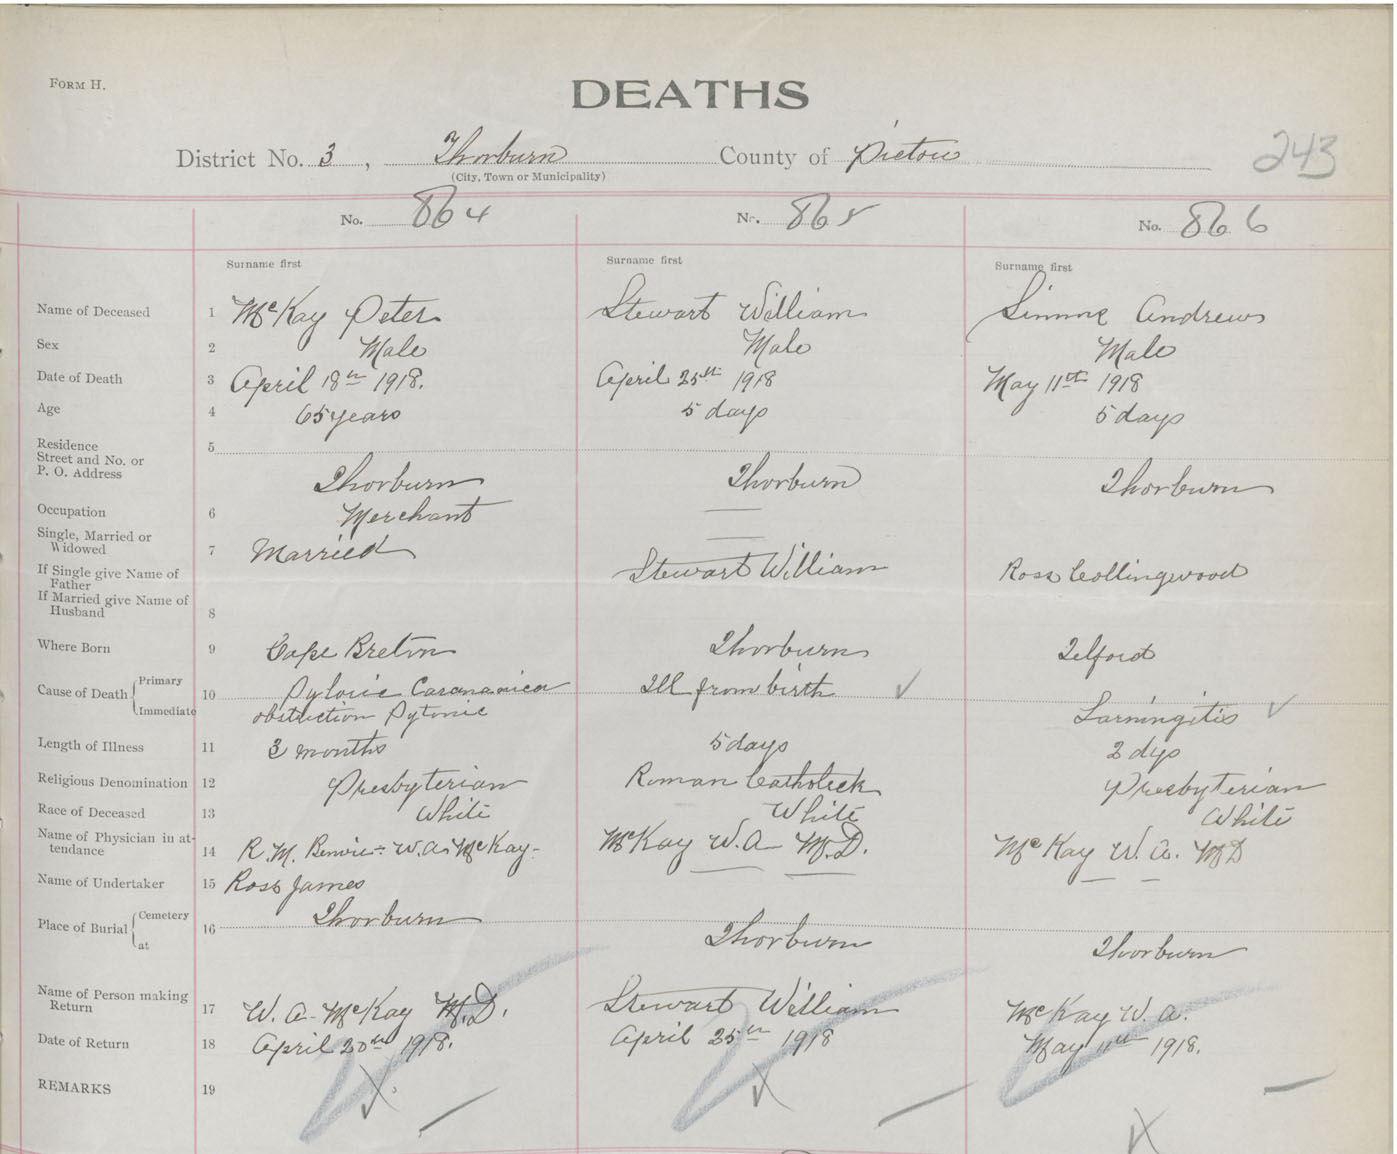 FORM H.
DEATHS
District No. 3, Thorburn County of Pictou
(City, Town or Municipality)
243
No. 864 No. 865 No. 866
Surname first Surname first Surname first
Name of Deceased 1 McKay Peter Stewart William Simme Andrews
Sex 2 Male Male Male
Date of Death 3 April 18th 1918. April 25th 1918 May 11th 1918
Age 4 65 years 5 days 5 days
Residence 5
Street and No. or
P. O. Address Thorburn Thorburn Thorburn
Occupation 6 Merchant —
Single, Married or
Widowed 7 Married —
If Single give Name of
Father Stewart William Ross Collingwood
If Married give Name of
Husband 8
Where Born 9 Cape Breton Thorburn Telford
Cause of Death { Primary 10 Pyloric Ill from birth ✓
Immediate obstruction Larningitis ✓
Length of Illness 11 3 months 5 days 2 dys
Religious Denomination 12 Presbyterian Roman Catholick Presbyterian
Race of Deceased 13 White White White
Name of Physician in at-
tendance 14 R. M. W. A. McKay - McKay W. A M.D. McKay W. A. MD
Name of Undertaker 15 Ross James
Place of Burial { Cemetery 16 Thorburn
at Thorburn Thorburn
Name of Person making
Return 17 W. A. McKay M.D. Stewart William McKay W. A.
Date of Return 18 April 20th 1918. April 25th 1918 May 11th 1918.
REMARKS 19 X X X